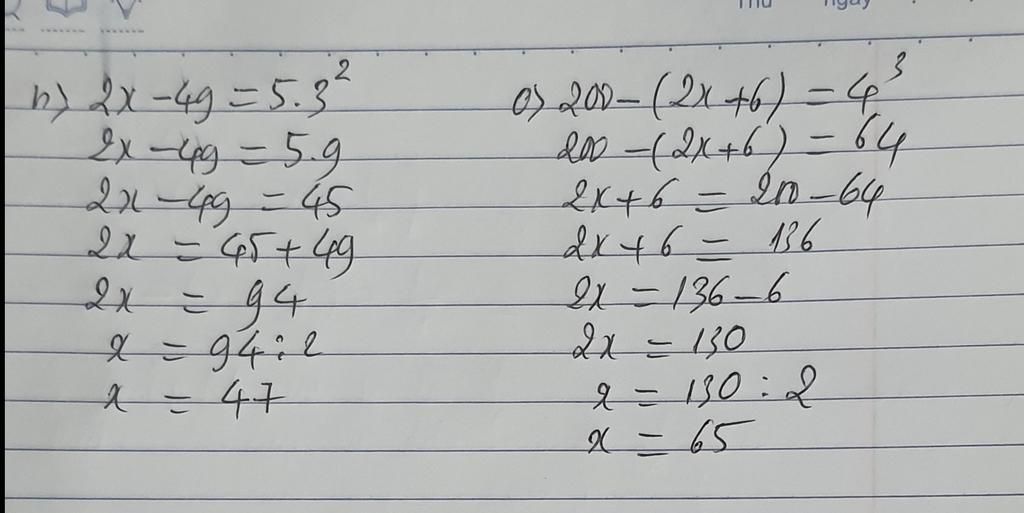 Thứ ngày
n) 2x - 49 = 5.3²
2x - 49 = 5.9
2x - 49 = 45
2x = 45 + 49
2x = 94
x = 94 : 2
x = 47
o) 200 - (2x + 6) = 4³
200 - (2x + 6) = 64
2x + 6 = 200 - 64
2x + 6 = 136
2x = 136 - 6
2x = 130
x = 130 : 2
x = 65